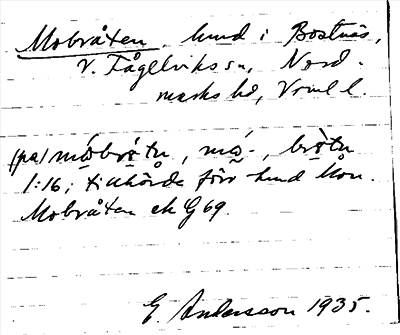 Mobråten, hmd i Bostnäs,
V. Fågelviks sn, Nord-
marks hd, Vrml l.
(på) 
1:16; tillhörde förr hmd Mon.
Mobråten ek G 69.
E. Andersson 1935.